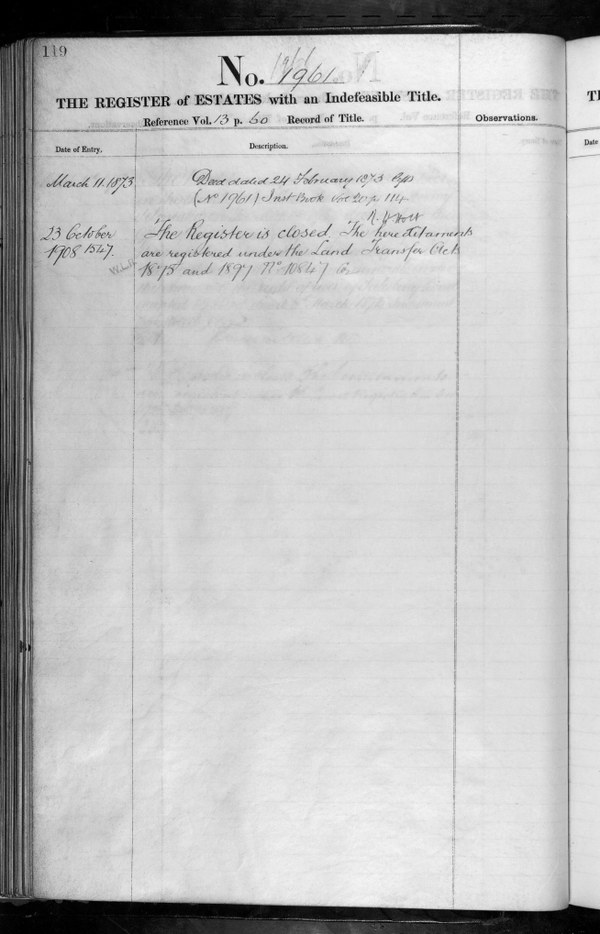 119
No. 1961
THE REGISTER of ESTATES with an Indefeasible Title.
Reference Vol. 13 p. 60 Record of Title.
Observations.
Date of Entry,
Description.
March 11. 1873
Deed dated 24 February 1873
(No 1961) Inst Book Vol 20 p 114
R. H. Holt
23 October
1908 1547.
The Register is closed. The hereditaments
are registered under the Land Transfer Acts
1875 and 1897 No 10847
TI
Date